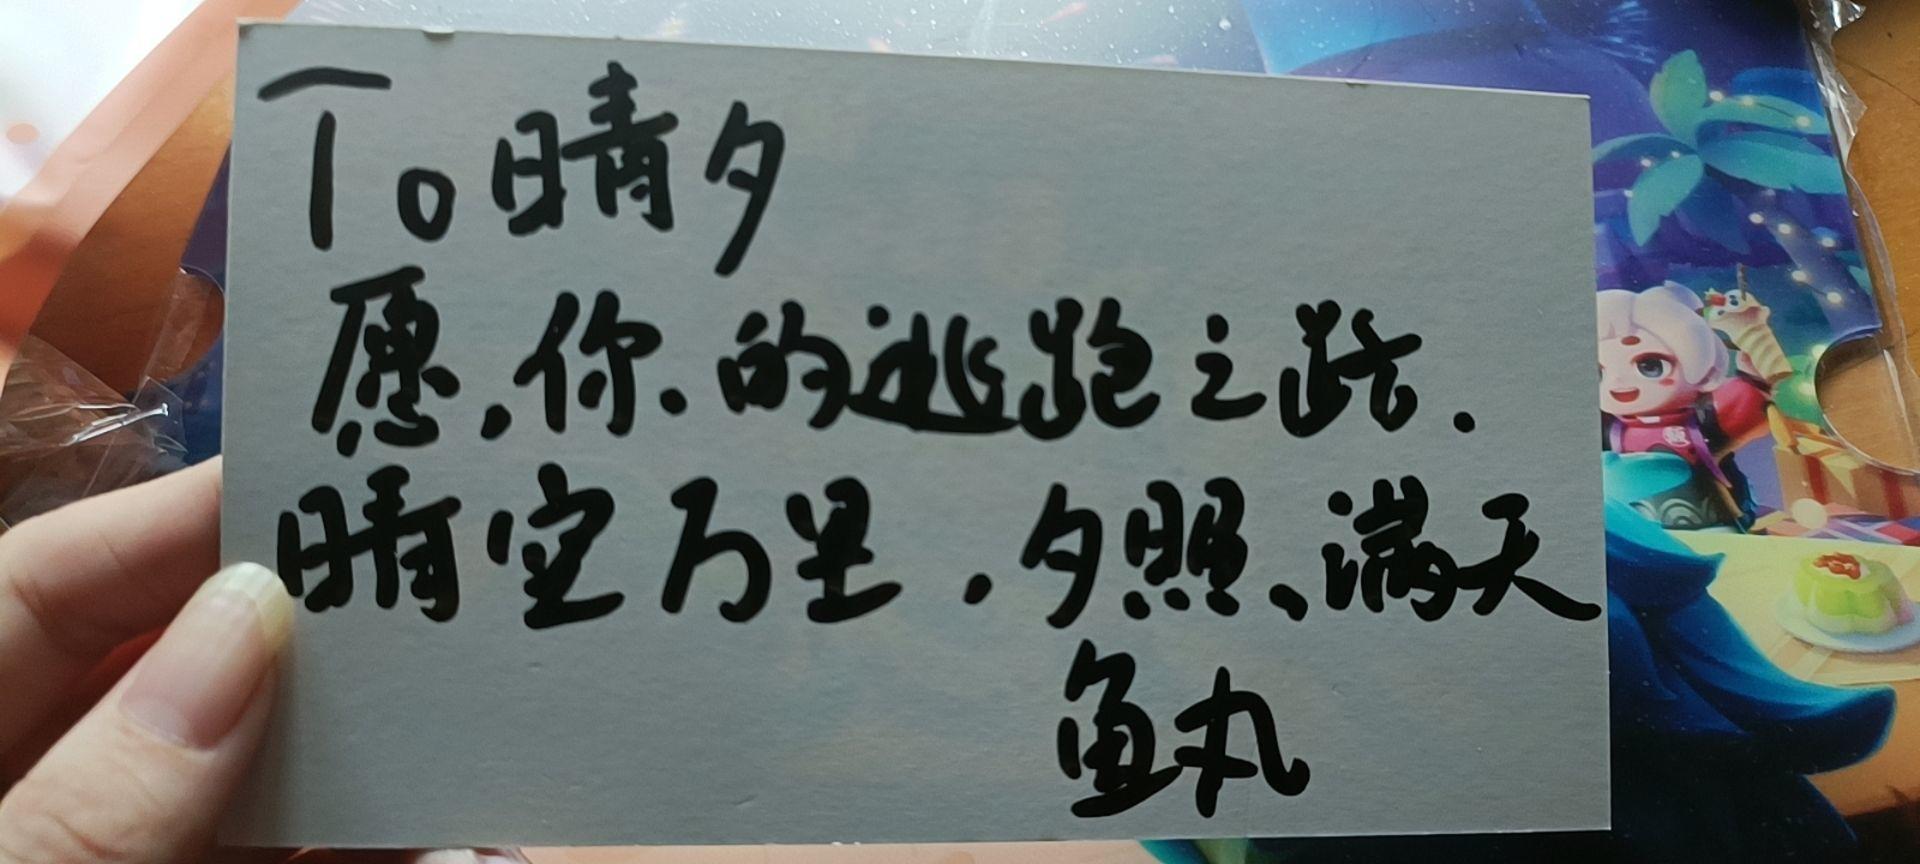 To 晴夕
愿你的逃跑之路.
晴空万里,夕照满天
鱼丸